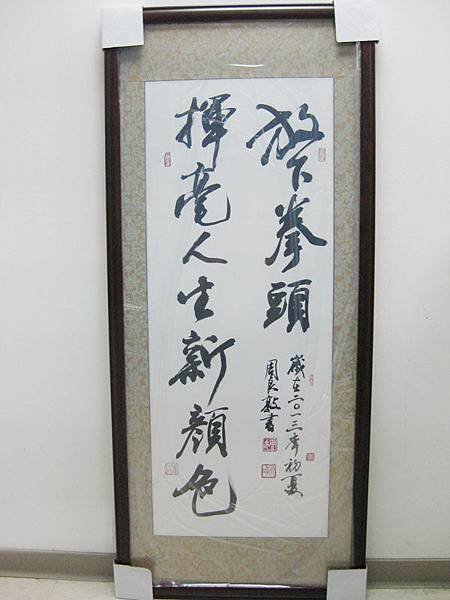 放下拳頭
揮毫人生新顏色
歲在二〇一三年初夏
周良敦書